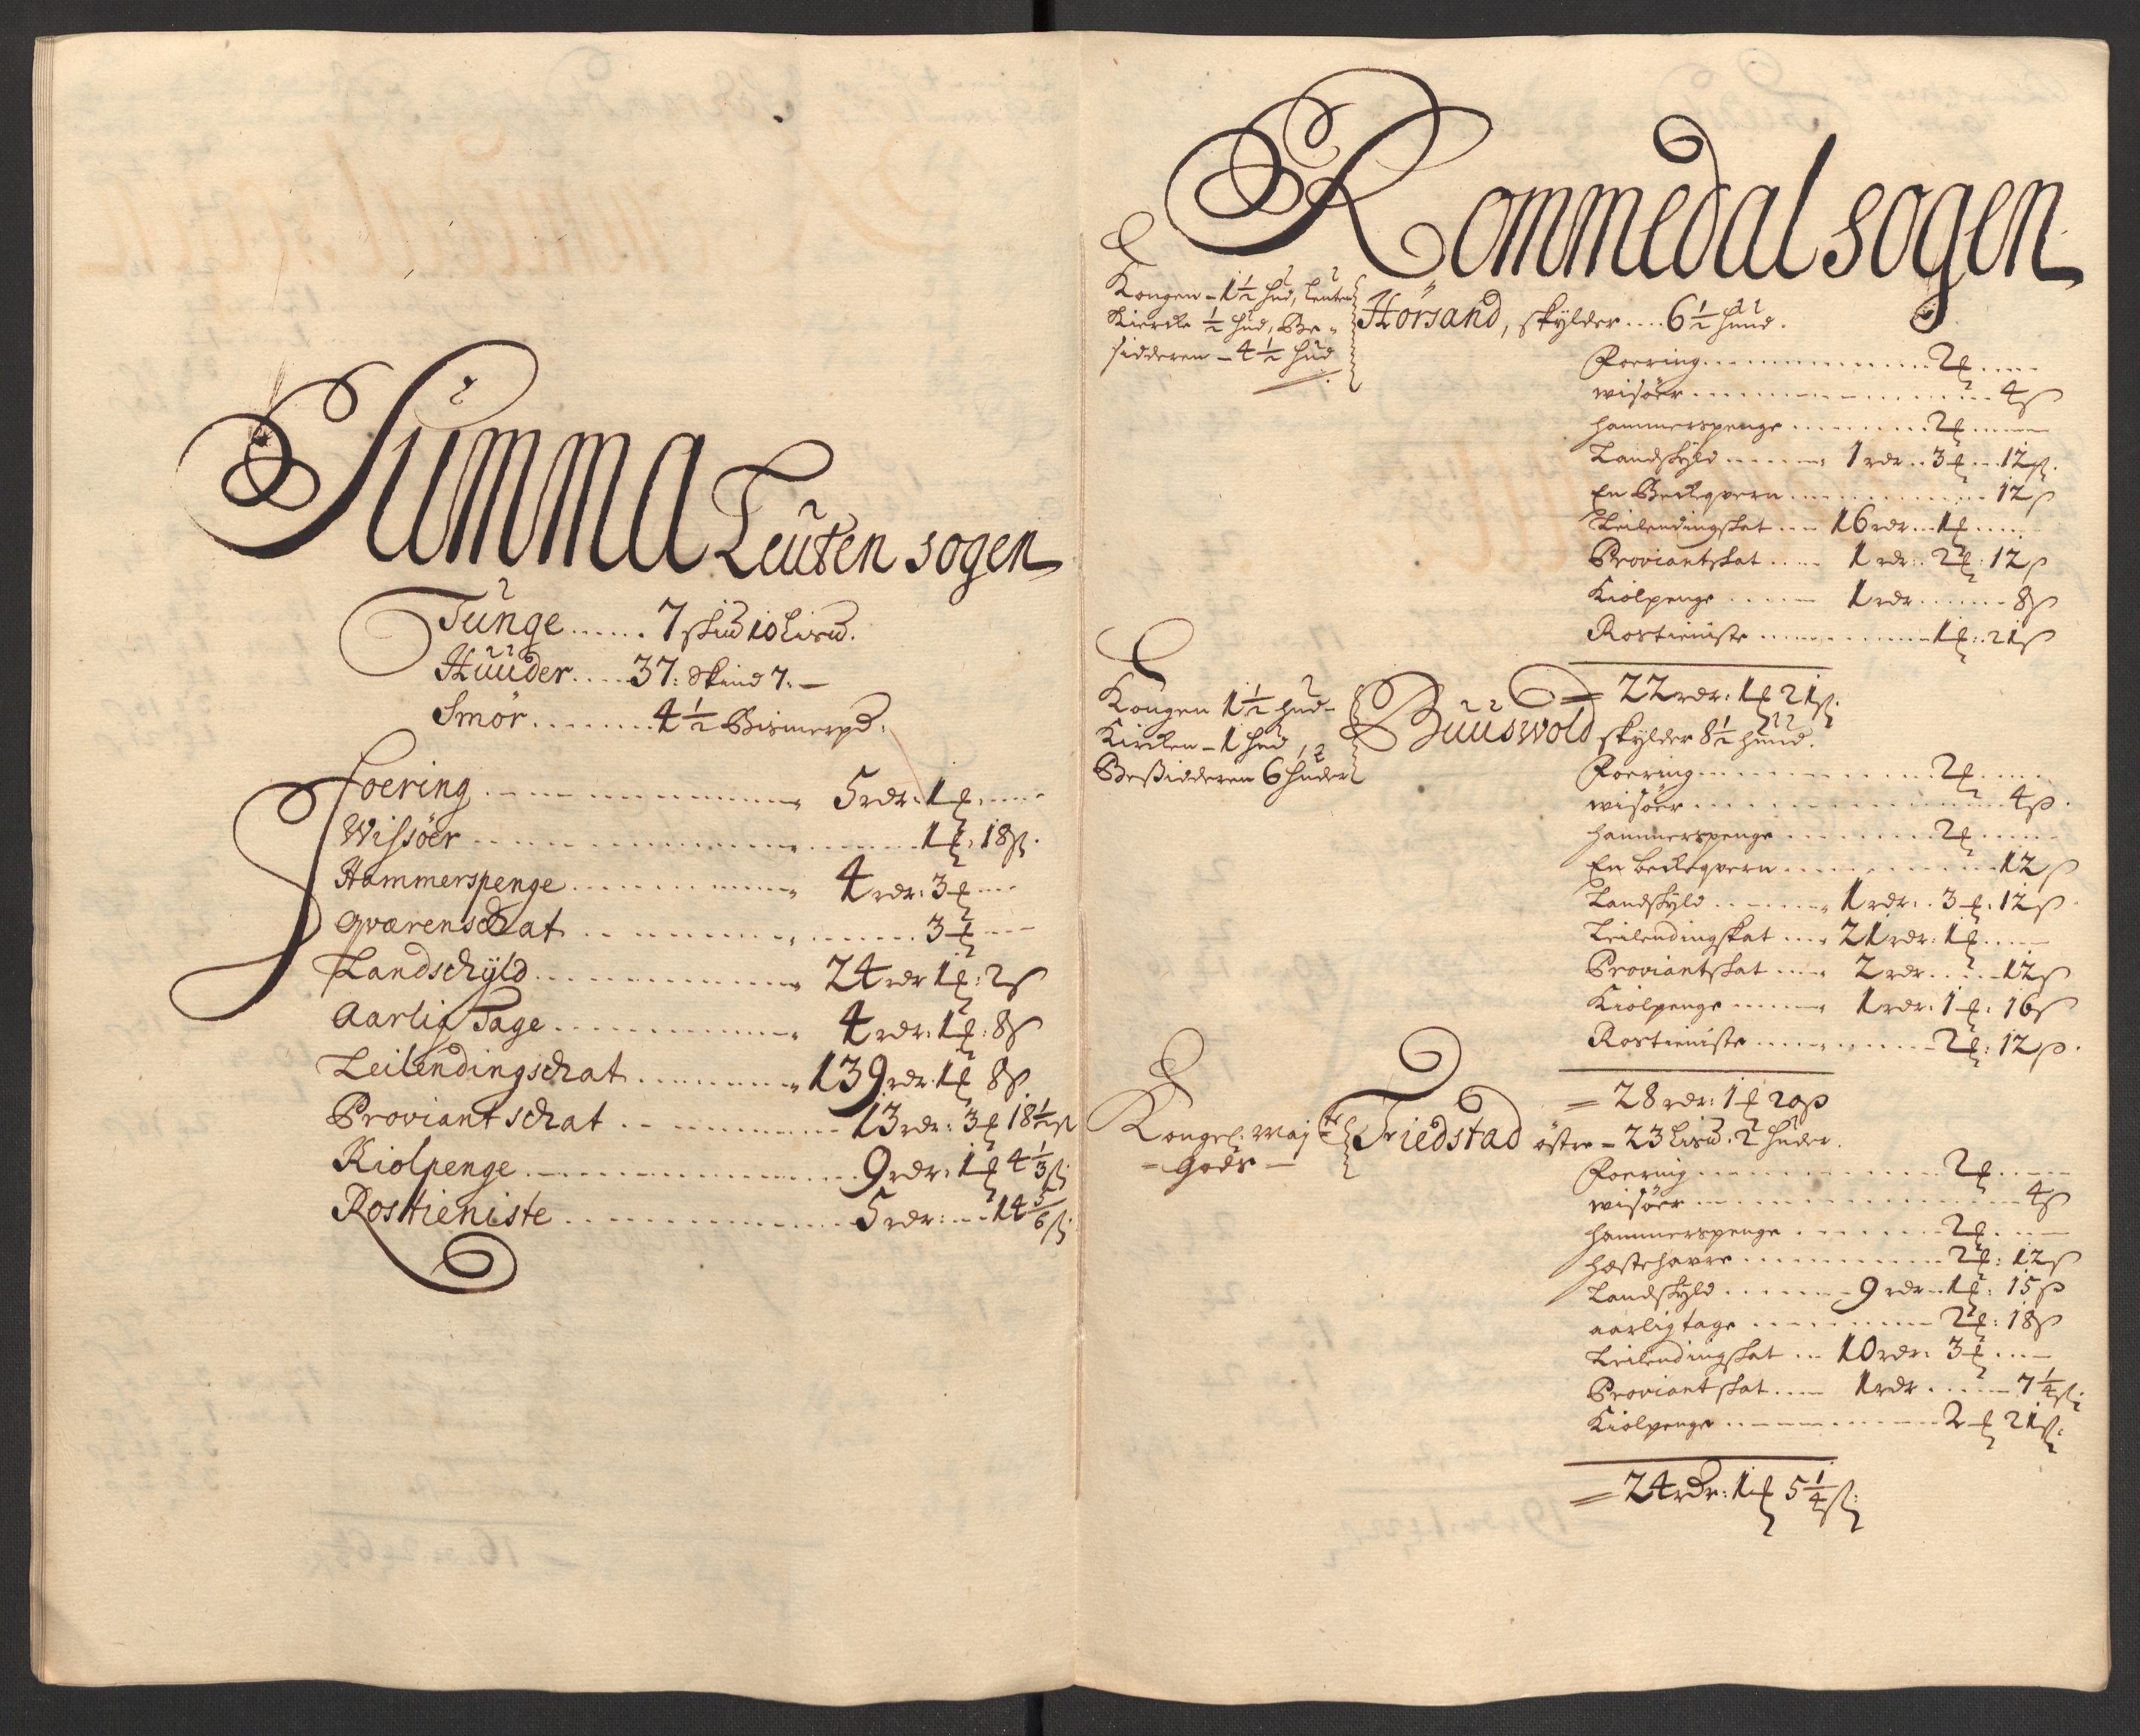 Summa Leuten sogen
Tunge...... 7 skud 10 Lisπd.
Huuder.... 37: Skind 7.
Smör....... 4½ Bismerpd.
Foering ............ 5 rdr: 1 ȶ ....
Wissöer ............ 1 ȶ: 18 ß.
Hammerspenge ............ 4 rdr: 3 ȶ ...
Qværenschat ............ 3 ȶ ...
Landschÿld ............ 24 rdr 1 ȶ: 2 ß
Aarlig Tage ............ 4 rdr: 1 ȶ: 8 ß
Leilendingschat ......... 139 rdr: 1 ȶ 8 ß
Proviant schat ......... 13 rdr: 3 ȶ 18½ ß
Kiolpenge ............ 9 rdr: 1 ȶ 4⅓ ß:
Rosttieniste ............ 5 rdr: ... 14⅚ ß:
Rommedal sogen
Kongen - 1½ hud, Leuten
Kiercke ½ hud, Be-
sidderen - 4½ hud
Hörsand, skylder .... 6½ huud.
Foering ............ 2 ȶ ....
wisöer ............ 4 ß
hammerspenge ......... 2 ȶ ....
Landskyld ....... 1 rdr .. 3 ȶ ... 12 ß.
En Beckeqvern ............ 12 ß
Leilendingskat .... 16 rdr ... 1 ȶ ....
Proviantskat ..... 1 rdr: 2 ȶ: 12 ß
Kiolpenge ...... 1 rdr ...... 8 ß
Rostieniste ............ 1 ȶ: 21 ß
= 22 rdr: 1 ȶ 21 ß:
Kongen 1½ hud-
Kircken - 1 hud,
Beßidderen 6 huder
Buuswold skylder 8½ huud.
Foering ............ 2 ȶ ....
wisöer ............ 4 ß.
hammerspenge ......... 2 ȶ .....
En beckeqvern ............ 12 ß
Landskyld ....... 1 rdr: . 3 ȶ: 12 ß.
Leilendingskat .... 21 rdr: 1 ȶ ....
Proviantskat .... 2 rdr ..... 12 ß
Kiolpenge ...... 1 rdr: 1 ȶ: 16 ß
Rostieniste ............ 2 ȶ: 12 ß.
= 28 rdr: 1 ȶ 20 ß
Kongel: Maj:ts
- Gods -
Friedstad östre - 23 Lisπd. 2 huder.
Foering ............ 2 ȶ ....
wisöer ............ 4 ß
hammerspenge ......... 2 ȶ ....
hæstehavre ............ 2 ȶ: 12 ß
Landskyld ....... 9 rdr .. 1 ȶ: 15 ß
aarligtage ......... 2 ȶ: 18 ß
Leilendingskat ... 10 rdr: 3 ȶ ....
Proviantskat .... 1 rdr ...... 7¼ ß:
Kiolpenge ............ 2 ȶ 21 ß:
= 24 rdr: 1 ȶ 5¼ ß: